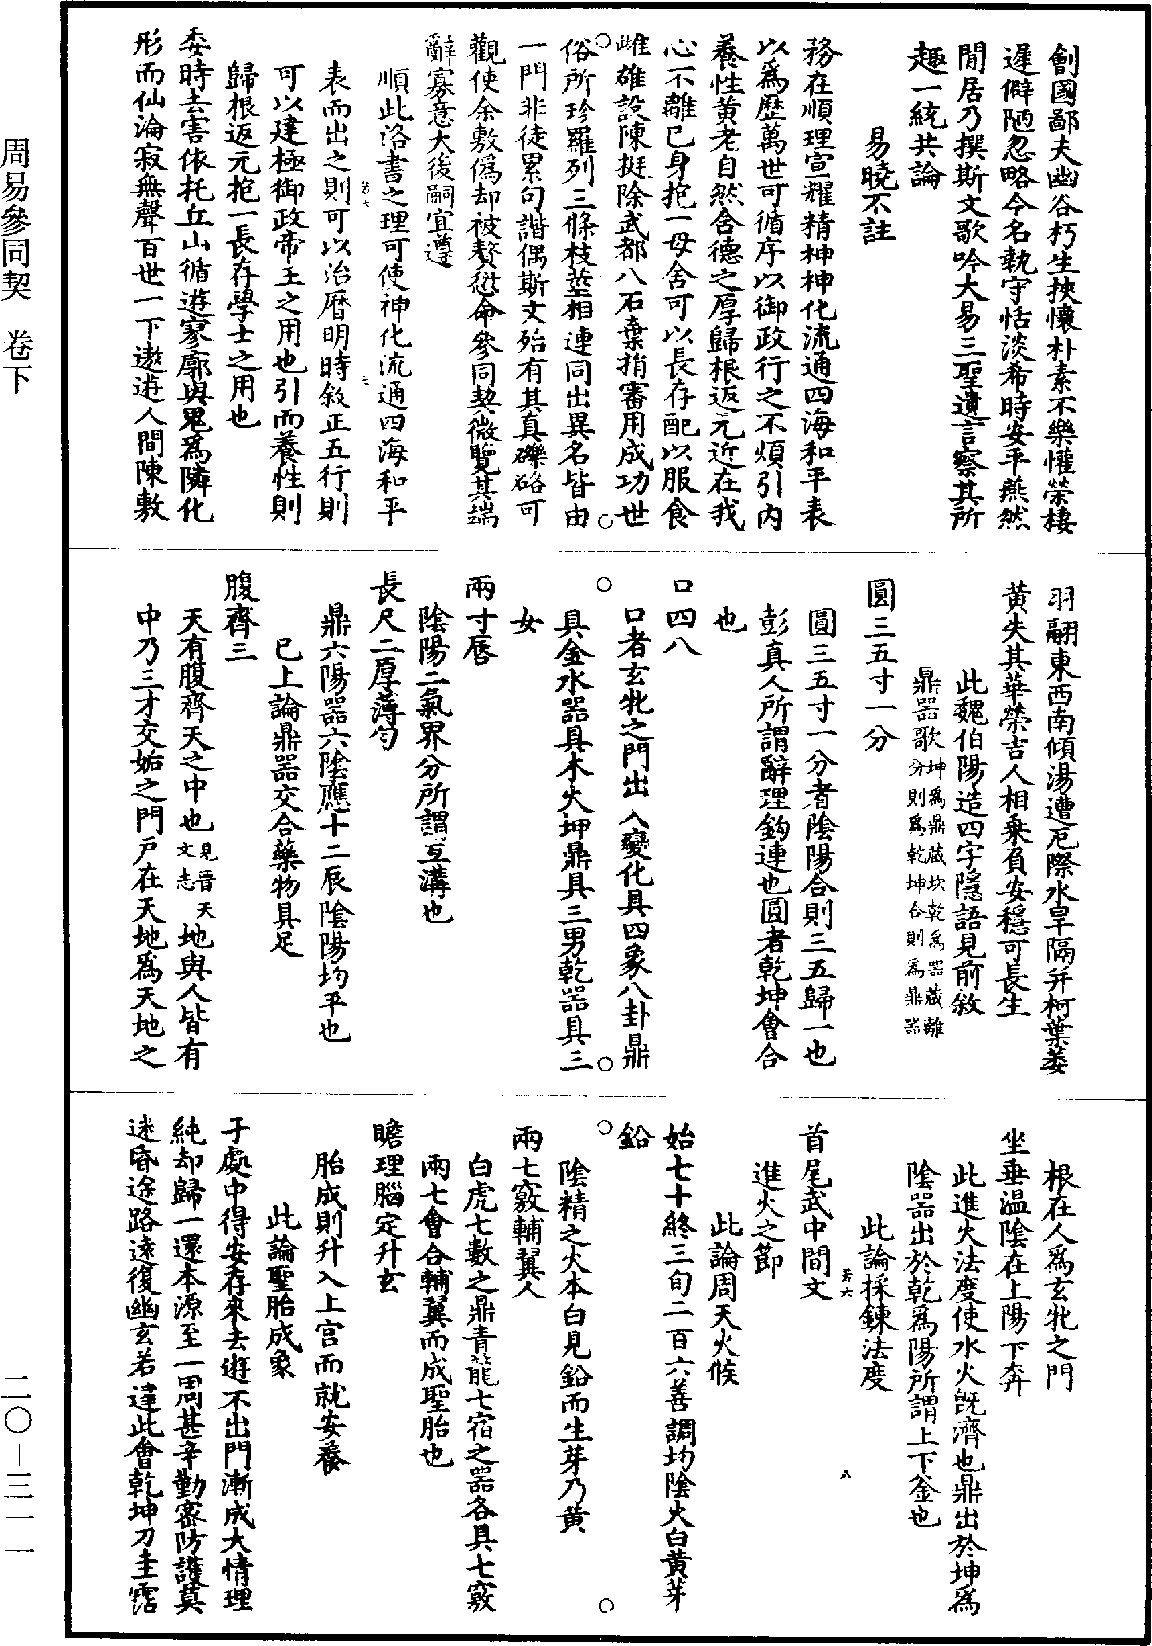 周易參同契　卷下
二〇—三一一
創國鄙夫幽谷朽生挾懷朴素不樂懽榮棲
遲僻陋忽略令名執守恬淡希時安平燕然
閒居乃撰斯文歌吟大易三聖遺言察其所
趣一統共論
易曉不註
務在順理宣耀精神神化流通四海和平表
以為歷萬世可循序以御政行之不煩引內
養性黃老自然含德之厚歸根返元近在我
心不離己身抱一毋舍可以長存配以服食
雌雄設陳挺除武都八石棄捐審用成功世
俗所珍羅列三條枝莖相連同出異名皆由
一門非徒累句諧偶斯文殆有其真礫硌可
觀使余敷偽却被贅愆命參同契微覽其端
辭寡意大後嗣宜遵
順此洛書之理可使神化流通四海和平
表而出之則可以治曆明時敘正五行則
可以建極御政帝王之用也引而養性則
歸根返元抱一長存學士之用也
委時去害依托丘山循遊寥廓與鬼為隣化
形而仙淪寂無聲百世一下遨遊人間陳敷
羽翮東西南傾湯遭厄際水旱隔并柯葉萎
黃失其華榮吉人相乘負安穩可長生
此魏伯陽造四字隱語見前敘
鼎器歌 坤為鼎藏坎乾為器藏離 分則為乾坤合則為鼎器
圓三五寸一分
圓三五寸一分者陰陽合則三五歸一也
彭真人所謂辭理鈎連也圓者乾坤會合
也
口四八
口者玄牝之門出入變化具四象八卦鼎
具金水器具木火坤鼎具三男乾器具三
女
兩寸唇
陰陽二氣界分所謂互溝也
長尺二厚薄勻
鼎六陽器六陰應十二辰陰陽均平也
已上論鼎器交合藥物具足
腹齊三
天有腹齊天之中也 見晉天文志 地與人皆有
中乃三才交姤之門戶在天地為天地之
根在人為玄牝之門
坐垂溫陰在上陽下奔
此進火法度使水火既濟也鼎出於坤為
陰器出於乾為陽所謂上下釜也
此論採鍊法度
首尾武中間文
進火之節
此論周天火候
始七十終三旬二百六善調均陰火白黃芽
鉛
陰精之火本白見鉛而生芽乃黃
兩七竅輔翼人
白虎七數之鼎青龍七宿之器各具七竅
兩七會合輔翼而成聖胎也
贍理腦定升玄
胎成則升入上宮而就安養
此論聖胎成象
子處中得安存來去遊不出門漸成大情理
純却歸一還本源至一周甚辛勤密防護莫
迷昏途路遠復幽玄若達此會乾坤刀圭霑